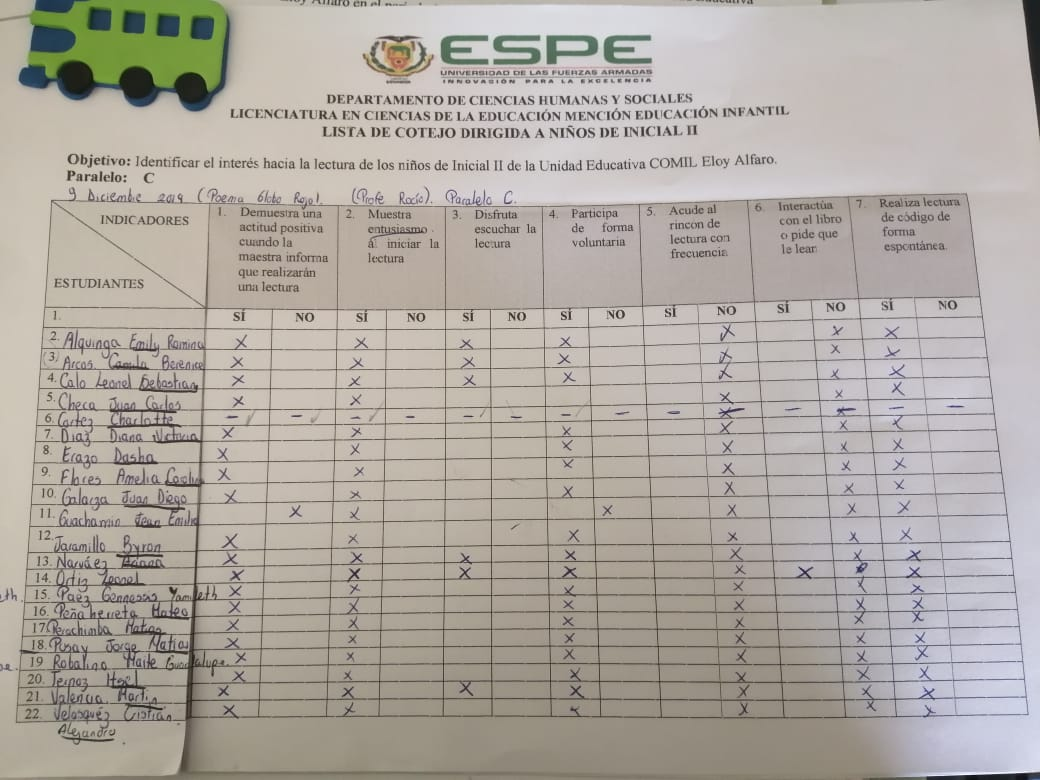 Eloy Alfaro en el
ESPE
UNIVERSIDAD DE LAS FUERZAS ARMADAS
INNOVACIÓN PARA LA EXCELENCIA
DEPARTAMENTO DE CIENCIAS HUMANAS Y SOCIALES
LICENCIATURA EN CIENCIAS DE LA EDUCACIÓN MENCIÓN EDUCACIÓN INFANTIL
LISTA DE COTEJO DIRIGIDA A NIÑOS DE INICIAL II
Objetivo: Identificar el interés hacia la lectura de los niños de Inicial II de la Unidad Educativa COMIL Eloy Alfaro.
Paralelo: C
9 Diciembre 2019 (Poema Globo Rojo). (Profe Rocío). Paralelo C.
INDICADORES
ESTUDIANTES
1. Demuestra una
actitud positiva
cuando la
maestra informa
que realizarán
una lectura
2. Muestra
entusiasmo
al iniciar la
lectura
3. Disfruta
escuchar la
lectura
4. Participa
de forma
voluntaria
5. Acude al
rincón de
lectura con
frecuencia
6. Interactúa
con el libro
o pide que
le lean
7. Realiza lectura
de código de
forma
espontánea.
1. SÍ NO SÍ NO SÍ NO SÍ NO SÍ NO SÍ NO SÍ NO
2. Alquinga Emily Romina X X X X X X X
3. Arcos Camila Berenice X X X X X X X
4. Calo Leonel Sebastian X X X X X X X
5. Checa Juan Carlos X X X X X
6. Cortez Charlotte – – – – – – – – – – – –
7. Diaz Diana Victoria X X X X X X
8. Erazo Dasha X X X X X X
9. Flores Amelia Carolin X X X X X X
10. Galarza Juan Diego X X X X X X
11. Guachamin Jean Emilio X X X X X X
12. Jaramillo Byron X X X X X X
13. Narváez Ariana X X X X X X X
14. Ortiz Leonel X X X X X X X
15. Paéz Gennessis Yamileth X X X X X X
16. Peñaherreta Mateo X X X X X X
17. Perachimba Matias X X X X X X
18. Pusay Jorge Matias X X X X X X
19 Robalino Maite Guadalupe. X X X X X X
20. X X X X X X
21. Valencia Martin X X X X X X X
22. Velasquéz Cristian X X X X X X
Alejandro